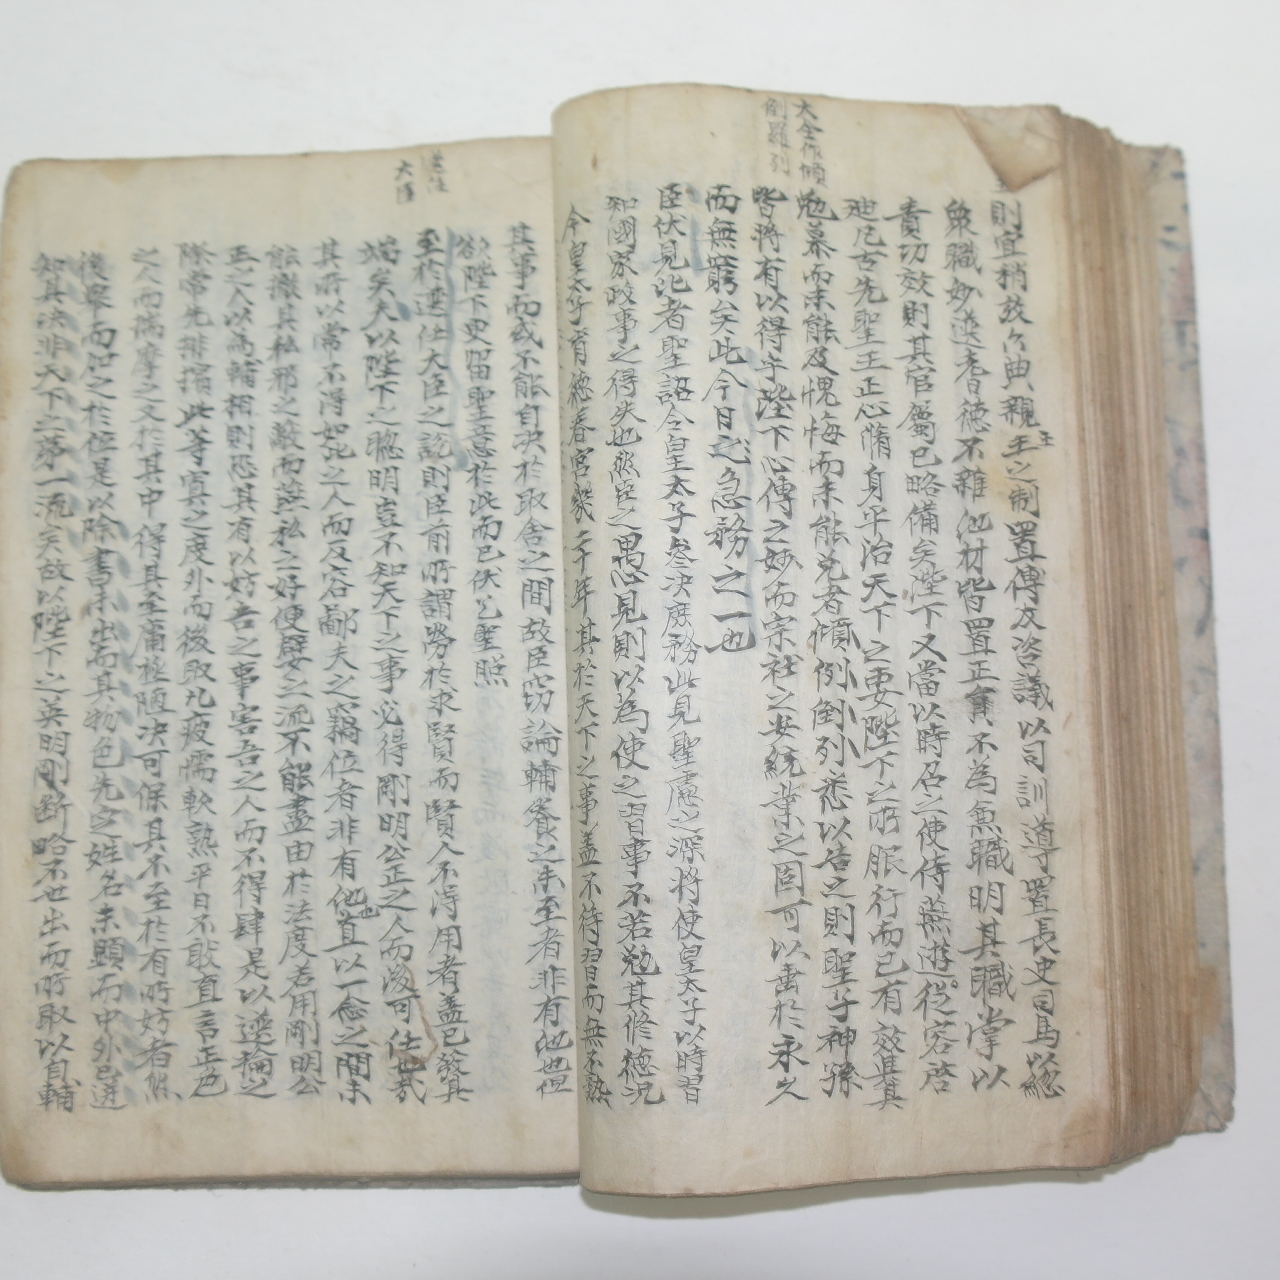 大全作傾
倒羅列
則宜稍放六典親王之制置傅友咨議以司訓導置長史司馬以總
衆職妙選耆德不雜他材皆置正員不為兼職明其職掌以
責功效則其官屬已略備矣陛下又當以時召之使侍燕遊從容啓
迪凡古先聖王正心脩身平治天下之要陛下之所服行而已有效與其
勉慕而未能及愧悔而未能免者傾倒列悉以告之則聖子神孫
皆將有以得乎陛下心傳之妙而宗社之安統業之固可以垂於永久
而無窮矣此今日之急務之一也
臣伏見比者聖詔令皇太子參決庶務此見聖慮之深將使皇太子以時習
知國家政事之得失也然臣之愚心見則以為使之習事不若勉其修德況
今皇太子育德春宮幾二十年其於天下之事盖不待習而無不熟
其事而或不能自決於取舍之間故臣窃論輔養之未至者非有他也但
欲陛下更留聖意於此而已伏乞聖照
選任
大臣
至於選任大臣之說則臣前所謂勞於求賢而賢人不得用者盖已發其
端矣夫以陛下之聰明豈不知天下之事必得剛明公正之人而後可任也哉
其所以常不得如此之人而反容鄙夫之竊位者非有他也直以一念之間未
能撤其私邪之蔽而燕私之好便嬖之流不能盡由於法度若用剛明公
正之人以為輔相則恐其有以妨吾之事害吾之人而不得肆是以選掄之
際常先排擯此等寘之度外而後取凡疲懦軟熟平日不敢直言正色
之人而揣摩之又於其中得其至庸極陋決可保其不至於有所妨者然
後擧而加之於位是以除書未出而其物色先定姓名未顯而中外已逆
知其決非天下之第一流矣故以陛下之英明剛斷略不世出而所取以自輔